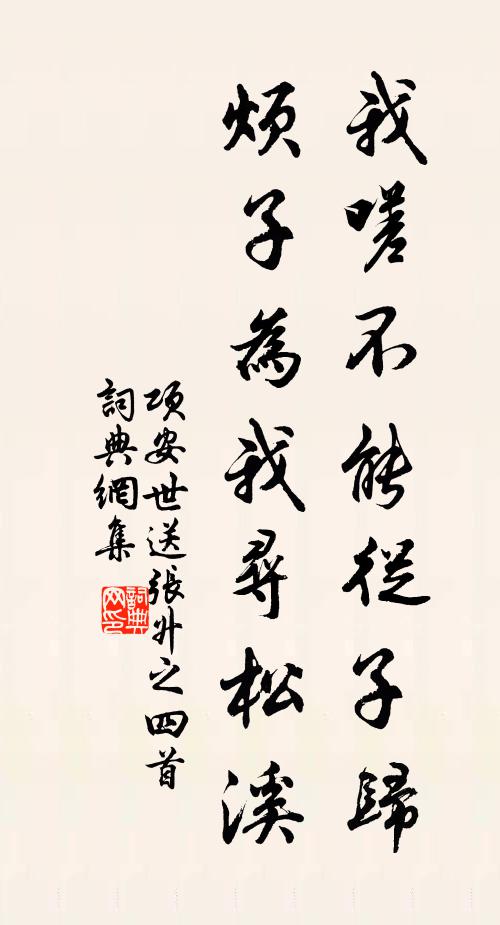 我嗟不能從子歸
煩子為我尋松溪
項安世送張升之四首
詞典網集
詞典网印